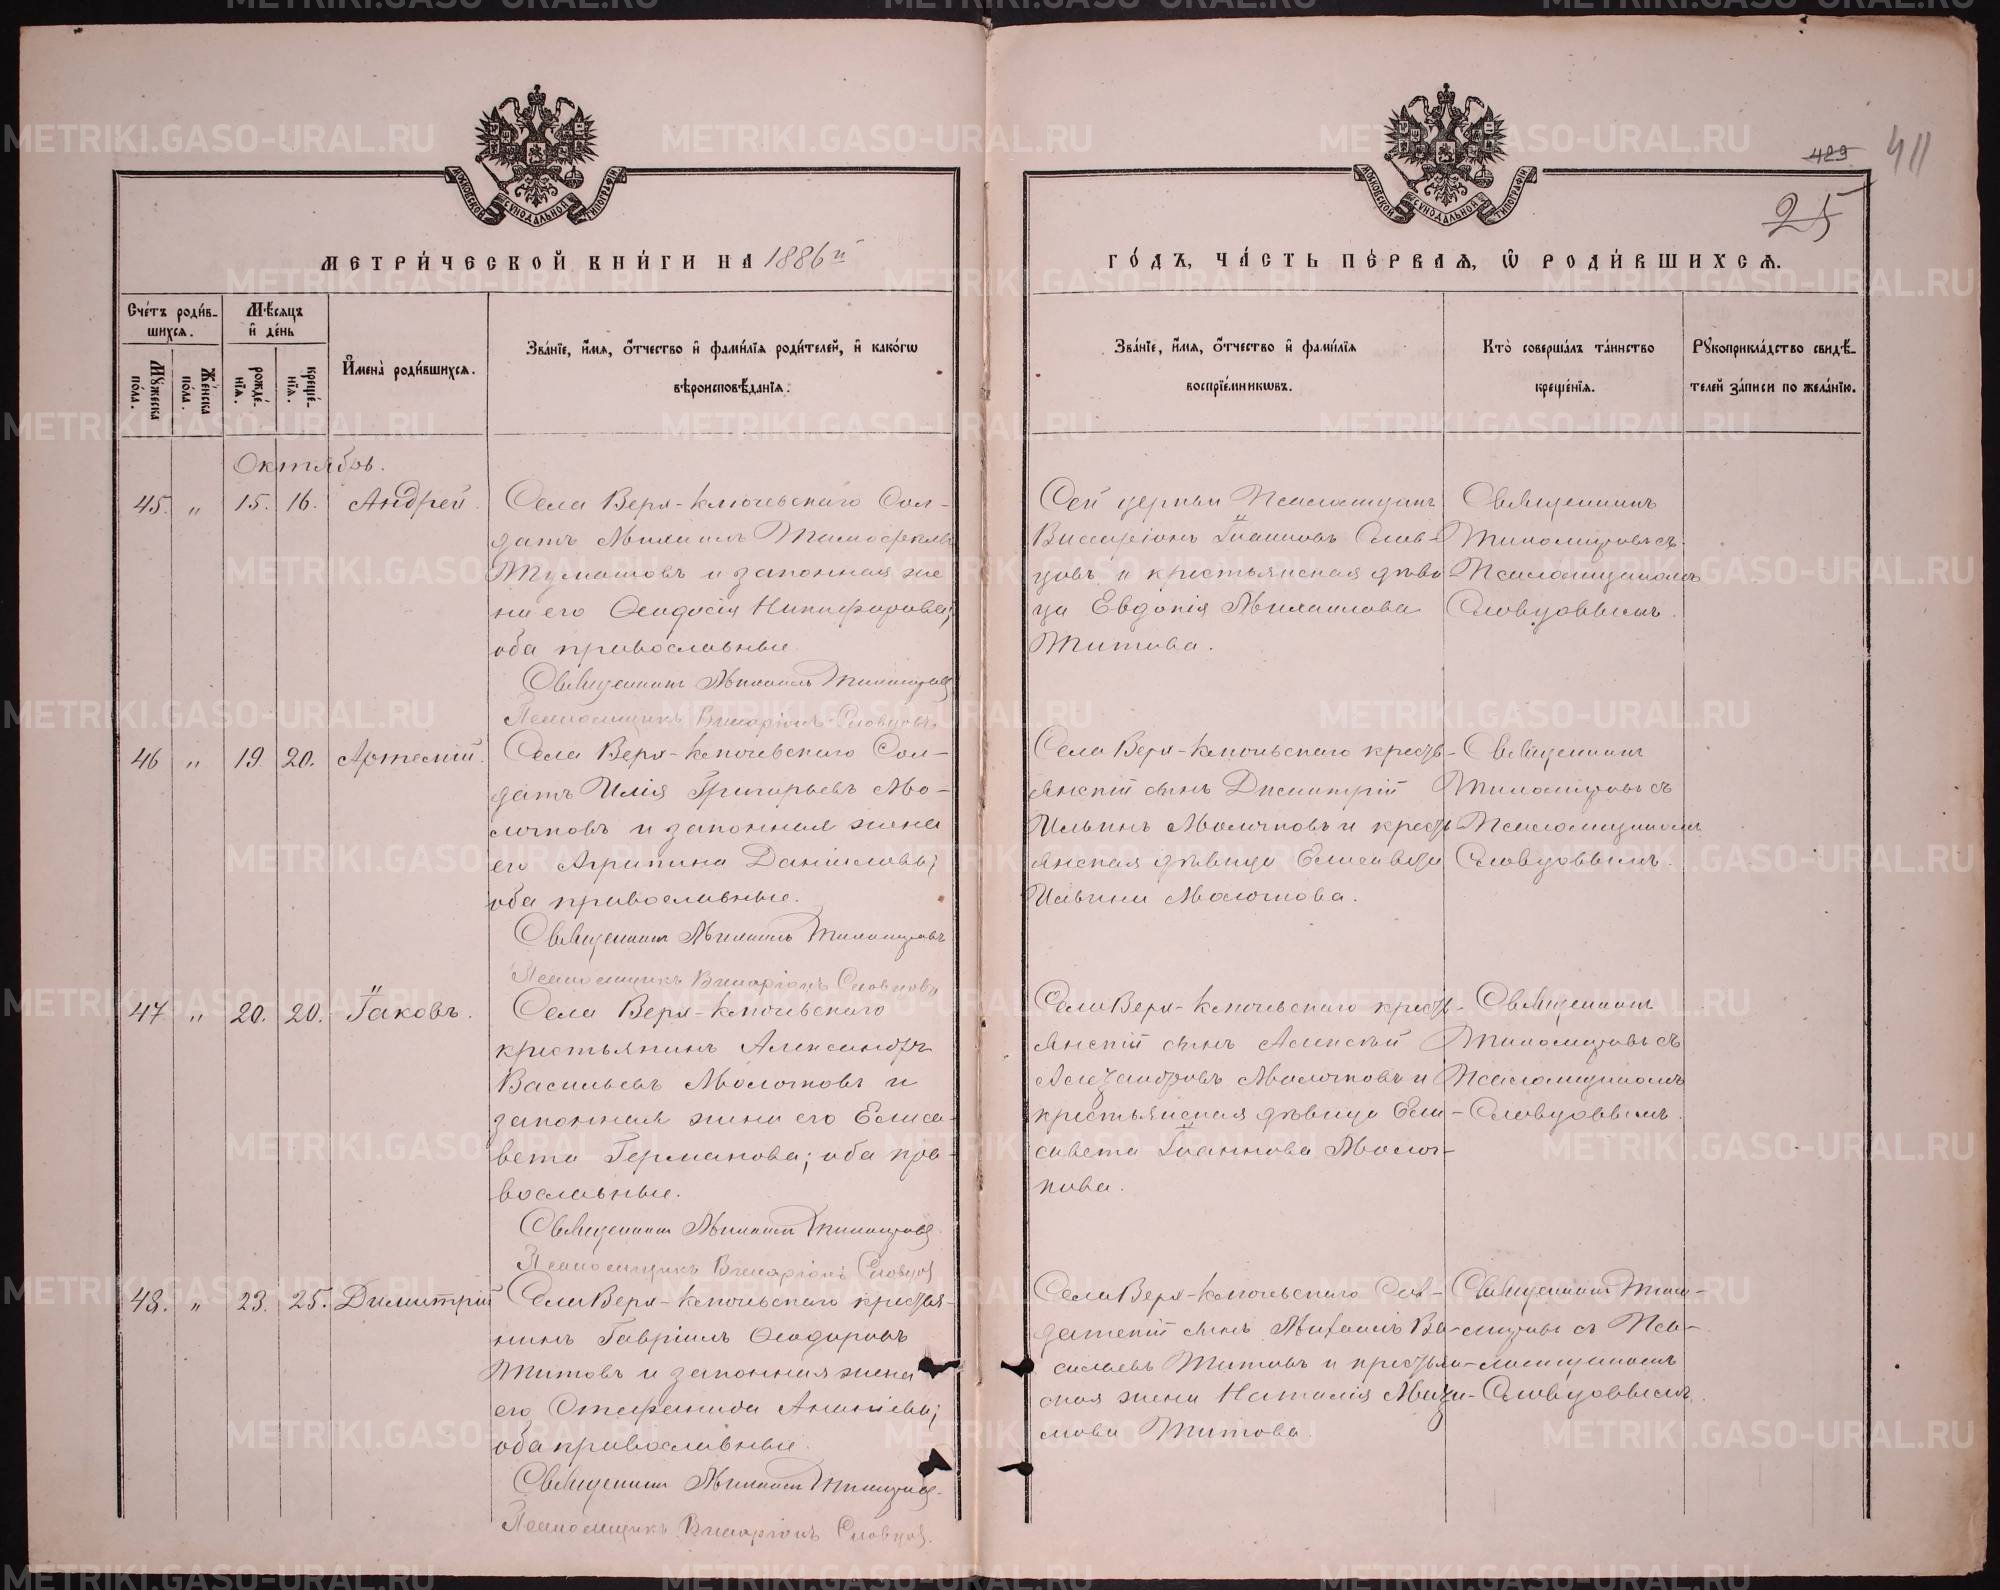 429
411
25
МЕТРИ́ЧЕСКОЙ КНИ́ГИ НА 1886й
ГО́ДЪ, ЧА́СТЬ ПЕ́РВАѦ, Ѡ РОДИ́ВШИХСѦ.
Сче́тъ роди́в-
шихсѧ.
Мꙋжеска по́ла.
Же́нска по́ла.
Мѣ́сѧцъ
и҆ де́нь
рожде́-
нїѧ.
креще́-
нїѧ.
И҆мена̀ роди́вшихсѧ.
Зва́нїе, и҆́мѧ, ѻ҆́тчество и҆ фами́лїѧ роди́телей, и҆ како́гѡ
вѣроисповѣ́данїѧ.
Зва́нїе, и҆́мѧ, ѻ҆́тчество и҆ фами́лїѧ
воспрїе́мникѡвъ.
Кто̀ соверша́лъ та́инство
креще́нїѧ.
Рꙋкоприкла́дство свидѣ́-
телей за́писи по жела́нїю.
Октябрь.
45. " 15. 16. Андрей.
Села Верх-Ключевскаго Сол-
датъ Михаилъ Тимофеевъ
Тумашовъ и законная же
на его Ѳеодосія Никифорова;
оба православные.
Священникъ Михаилъ Тихомировъ
Псаломщикъ Виссаріонъ Словцовъ.
Сей церкви Псаломщикъ
Виссаріонъ Іоанновъ Слов-
цовъ и крестьянская дѣви
ца Евдокія Михаилова
Титова.
Священникъ
Тихомировъ съ
Псаломщикомъ
Словцовымъ.
46 " 19. 20. Артемій.
Села Верх-Ключевскаго Сол-
датъ Илія Григорьевъ Мо-
лочковъ и законная жена
его Агрипина Даніилова;
оба православные.
Священникъ Михаилъ Тихомировъ
Псаломщикъ Виссаріонъ Словцовъ
Села Верх-Ключевскаго кресть-
янскій сынъ Димитрій
Ильинъ Молочковъ и кресть-
янская дѣвица Елисавета
Ильина Молочкова.
Священникъ
Тихомировъ съ
Псаломщикомъ
Словцовымъ.
47 " 20. 20. Іаковъ.
Села Верх-Ключевскаго
крестьянинъ Александръ
Васильевъ Молочковъ и
законная жена его Елиса-
вета Германова; оба пра-
вославные.
Священникъ Михаилъ Тихомировъ
Псаломщикъ Виссаріонъ Словцов
Села Верх-Ключевскаго кресть-
янскій сынъ Алексѣй
Александровъ Молочковъ и
крестьянская дѣвица Ели-
савета Іоаннова Молоч-
кова.
Священникъ
Тихомировъ съ
Псаломщикомъ
Словцовымъ.
48. " 23. 25. Димитрій
Села Верх-Ключевскаго крестья-
нинъ Гавріилъ Ѳеодоровъ
Титовъ и законная жена
его Стефанида Ананіева;
оба православные.
Священникъ Михаилъ Тихомиров.
Псаломщикъ Виссаріонъ Словцов.
Села Верх-Ключевскаго Сол-
датскій сынъ Михаилъ Ва-
сильевъ Титовъ и крестьян-
ская жена Наталія Макси-
мова Титова.
Священникъ Тихо-
мировъ съ Пса-
ломщикомъ
Словцовымъ.